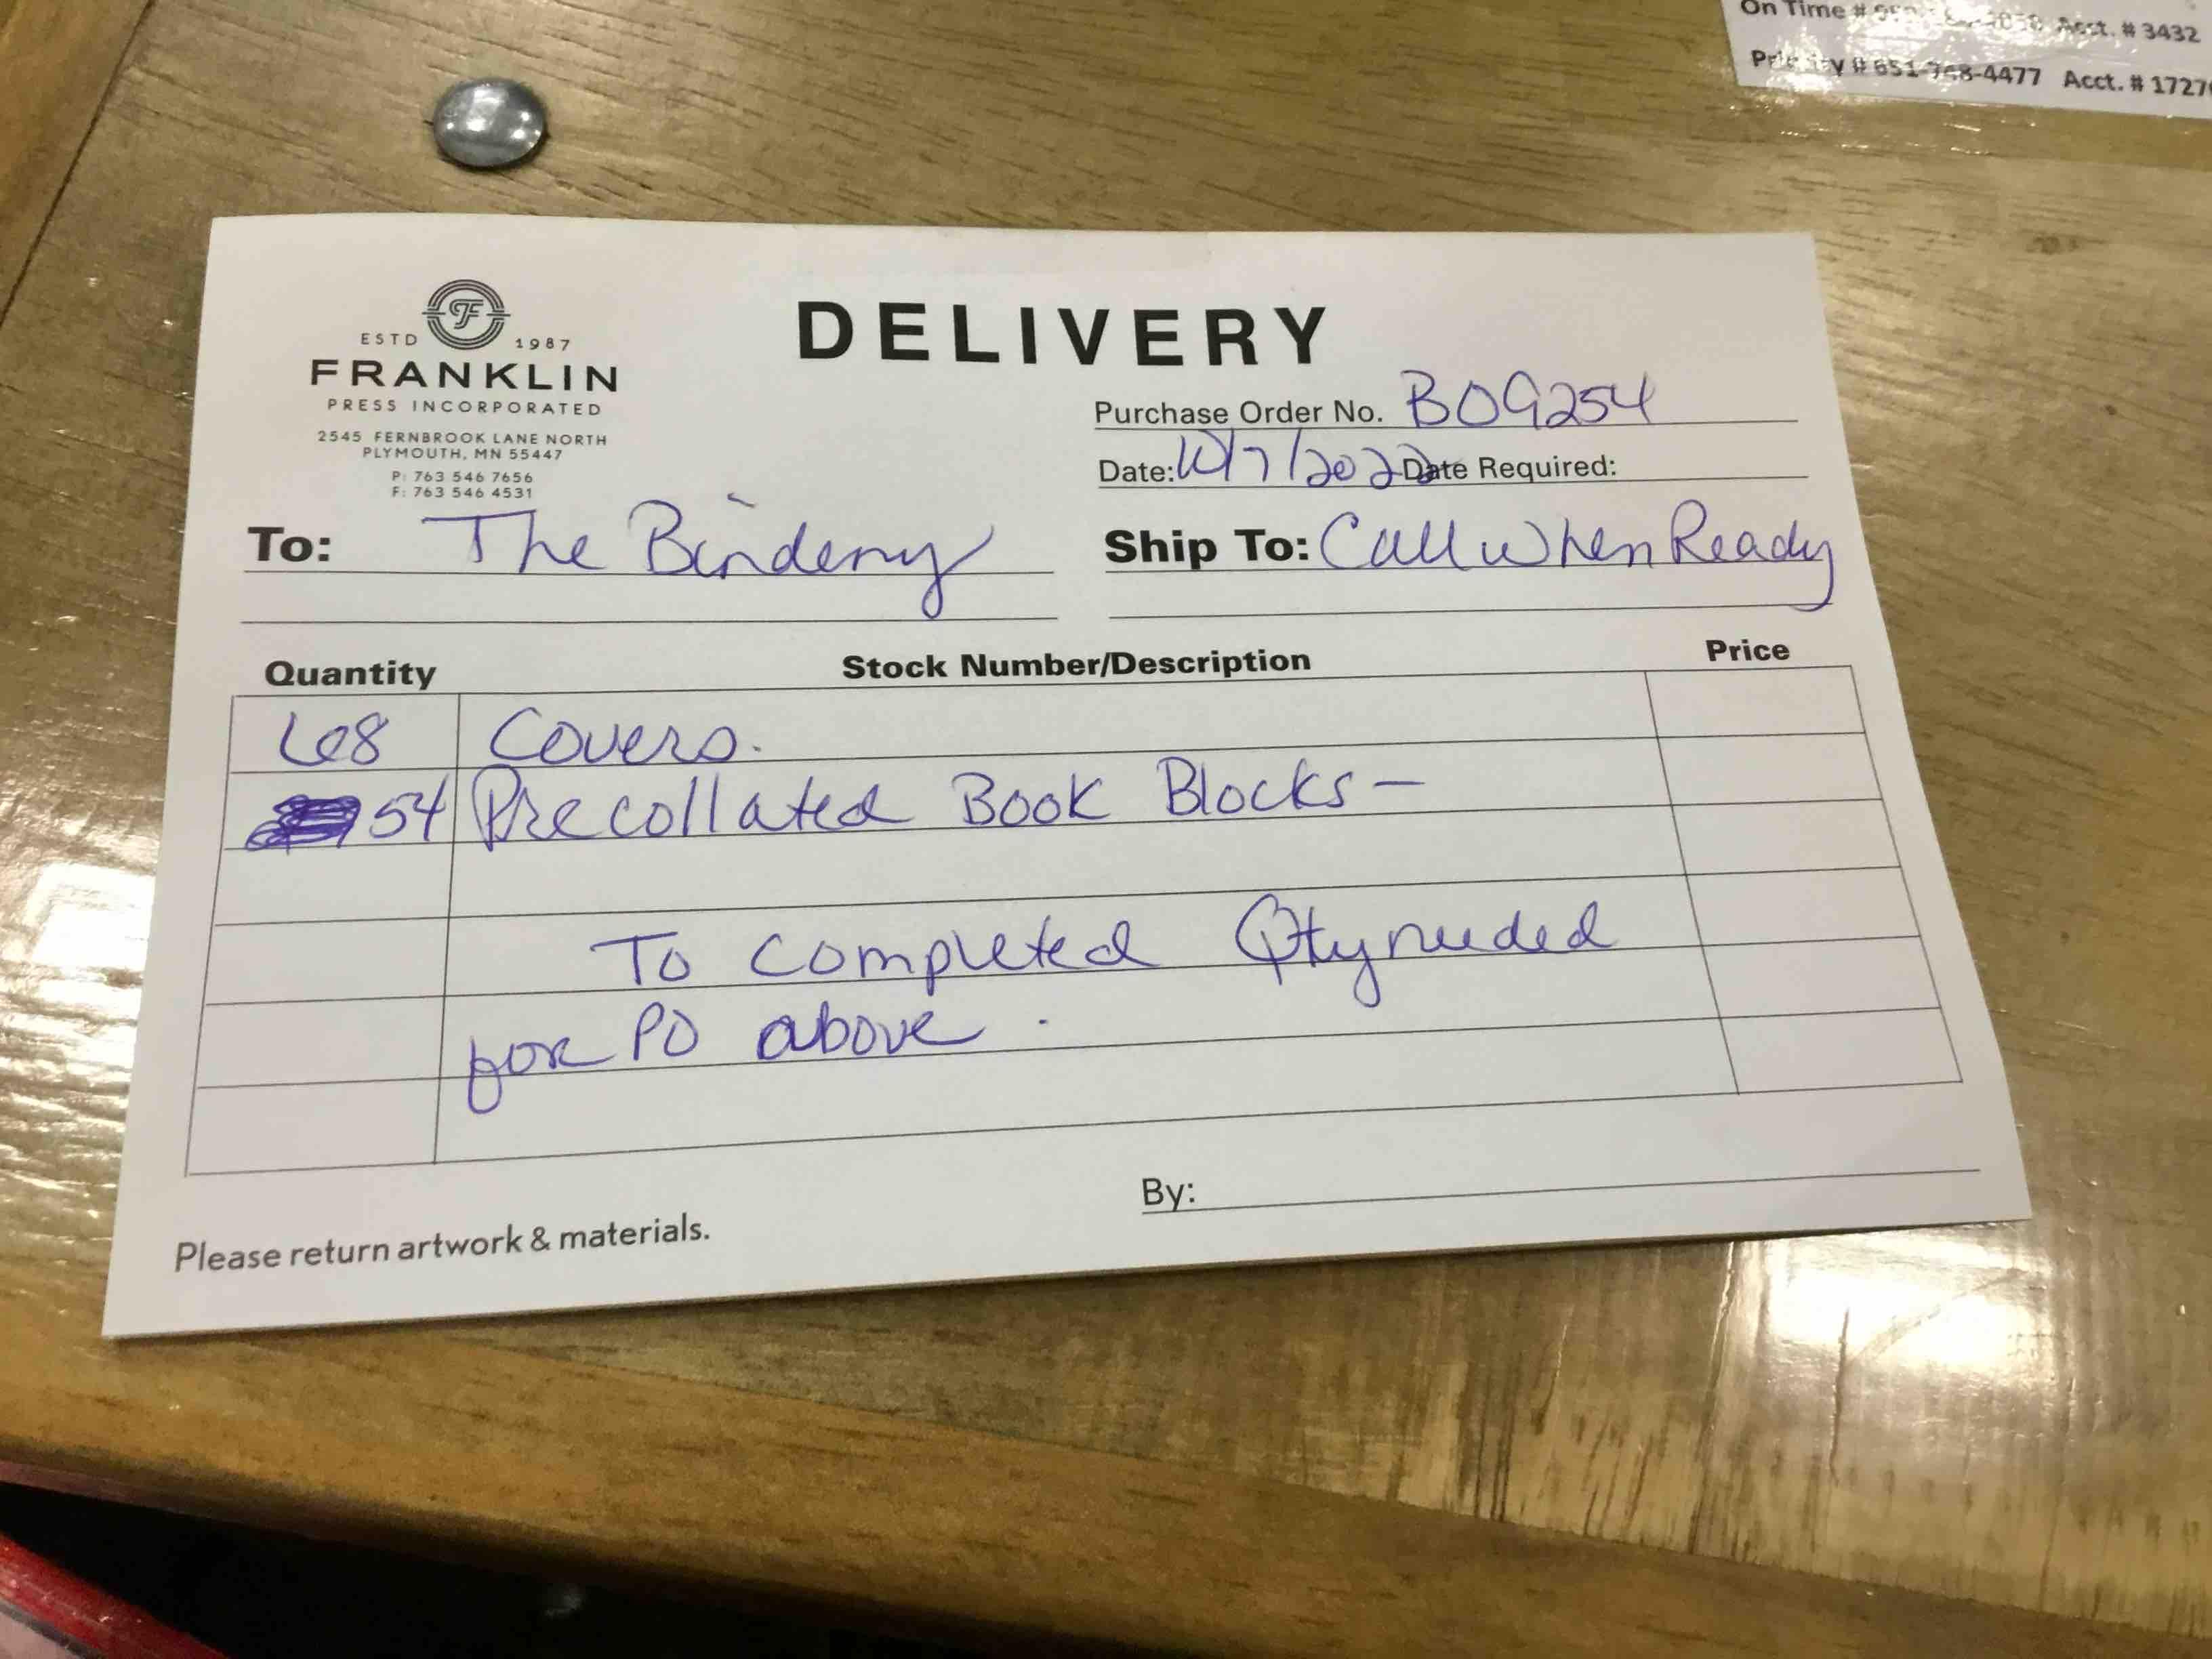 On Time # Acct. # 3432
Priority # 651-748-4477 Acct. # 1727
ESTD 1987
FRANKLIN
PRESS INCORPORATED
2545 FERNBROOK LANE NORTH
PLYMOUTH, MN 55447
P: 763 546 7656
F: 763 546 4531
DELIVERY
Purchase Order No. BO9254
Date: 10/7/2022 Date Required:
To: The Bindery
Ship To: Call when Ready
Quantity Stock Number/Description Price
68 Covers.
54 Precollated Book Blocks -
To completed Qty needed
for PO above.
By:
Please return artwork & materials.